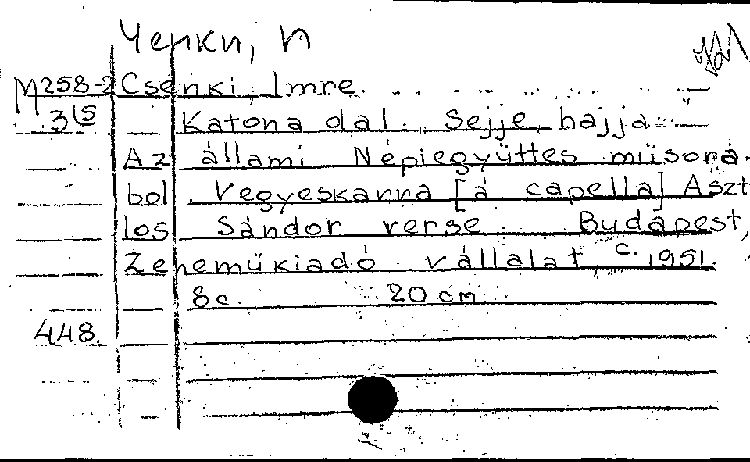 Ченки, И
M 258-2 Csenki Imre
3(5 Katona dal. Sejje, hajja
Az állami Népiegyüttes müsora-
bol. Vegyeskarra [a capella] Aszt
los Sándor verse. Budapest,
Zenemükiadó vállalat, c. 1951.
8c. 20 cm
448.